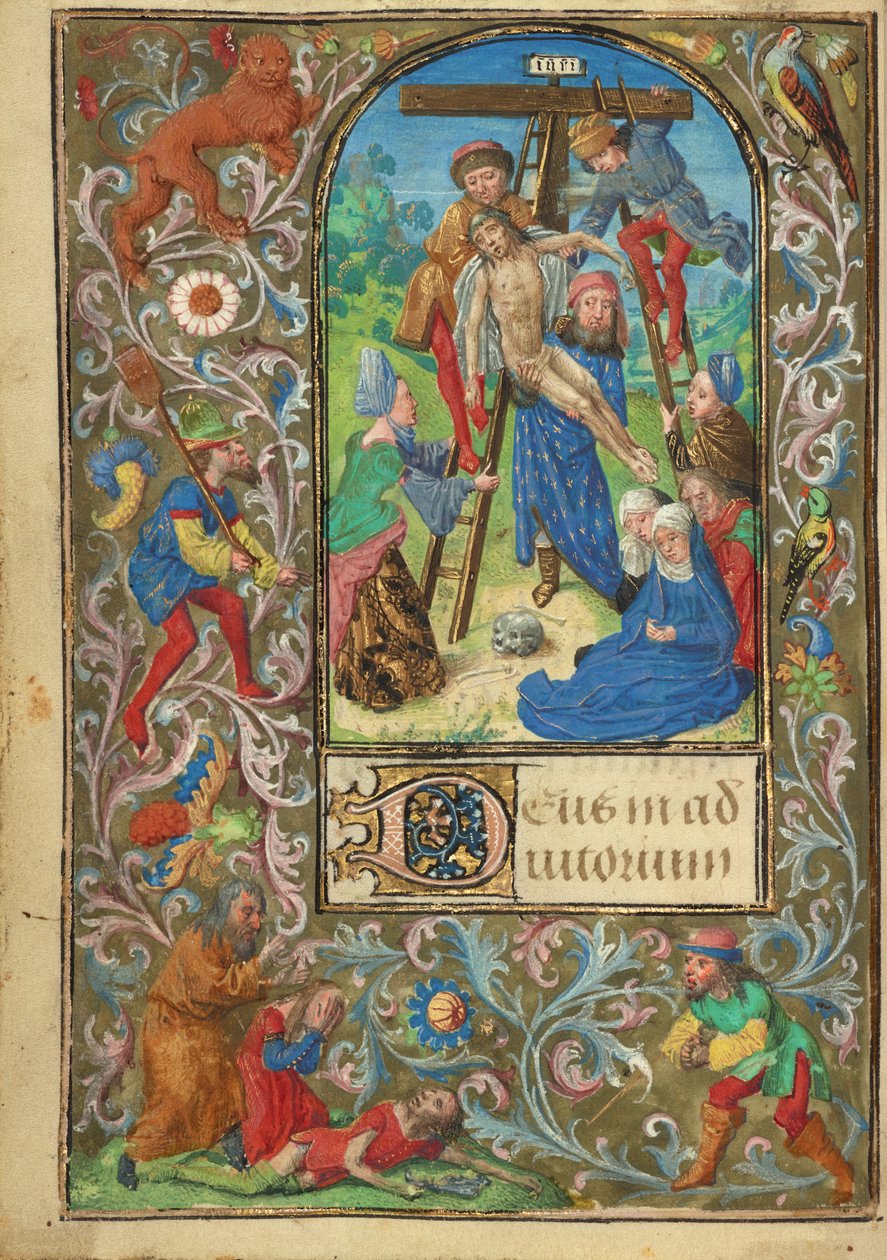 inri
Deus in ad
iutorium